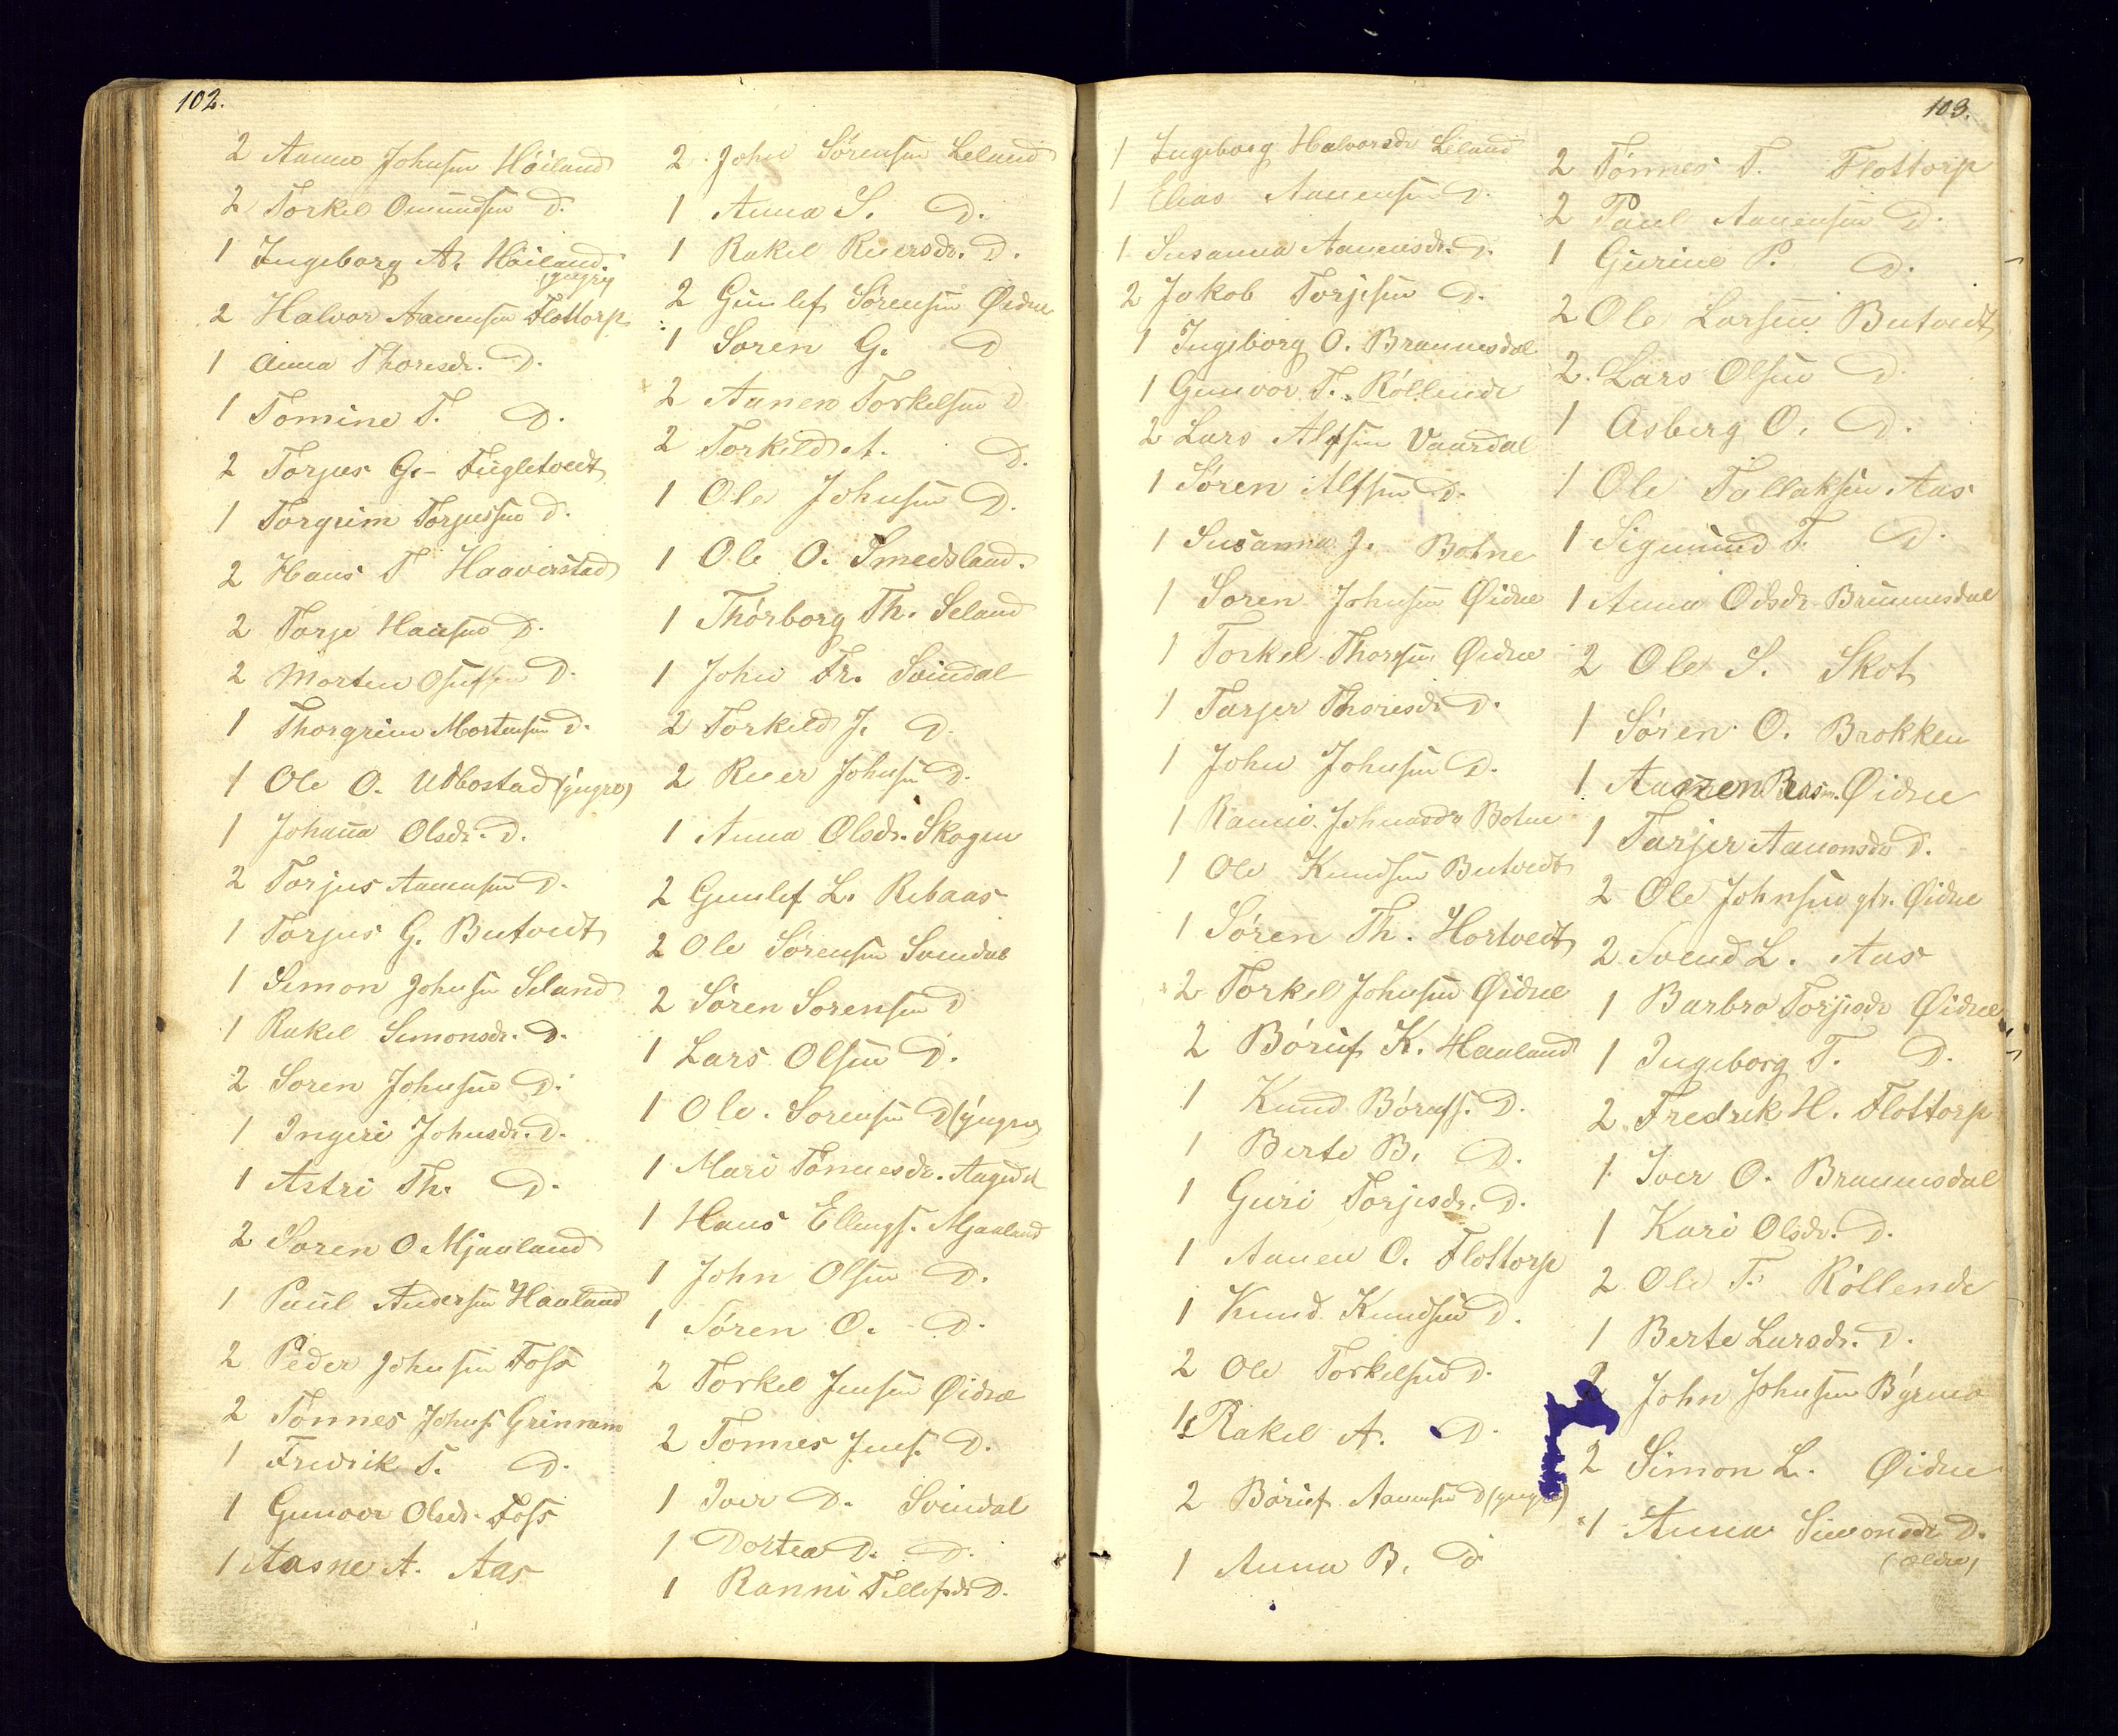 102.
2 Aanen Johnsen Höiland
2 Torkel Omundsen D.
1 Ingeborg A. Höiland.
(yngre)
2 Halvor Aanensen Flottorp
1 Anna Thoresdr. D.
1 Tomine T. D.
2 Torjus G. Fugletvedt
1 Torgrim Torjussen D.
2 Hans T Haaverstad
2 Torje Hansen D.
2 Morten Osufsen D.
1 Thorgrim Mortensen D.
1 Ole O. Ubbostad (yngre)
1 Johanna Olsdr. D.
2 Torjus Aanensen D.
1 Torjus G. Butvedt
1 Simon Johnsen Seland
1 Rakel Simonsdr. D.
2 Soren Johnsen D.
1 Ingeri Johnsdr. D.
1 Astri Th. D.
2 Soren O Mjaaland
1 Paul Andersen Haaland
2 Peder Johnsen Foss
2 Tønnes Johns. Grinram
1 Fredrik T. D.
1 Gunvor Olsdr. Foss
1 Aasne A. Aas
2 John Sörensen Leland
1 Anna S. D.
1 Rakel Reiersdr. D.
2 Gunlef Sörensen Øidne
1 Soren G. D
2 Aanen Torkelsen D
2 Torkild A. D.
1 Ole Johnsen D.
1 Ole O. Smedsland.
1 Thórborg Th. Seland
1 John Fr. Svindal
2 Torkild J. D.
2 Reier Johnsen D.
1 Anna Olsdr. Skogen
2 Gunlef L. Rebaas
2 Ole Sörensen Svindal
2 Sören Sorensen D
1 Lars Olsen D.
1 Ole Sorensen D (yngre)
1 Mari Tönnesdr. Aagedal
1 Hans Ellings. Mjaaland
1 John Olsen D.
1 Sören O. D.
2 Torkel Jensen Øidne
2 Tonnes Jens. D.
1 Iver D. Svindal
1 Dortea D. D.
1 Ranni Tellefsdr D.
103.
1 Ingeborg Halvorsdr Leland
1 Elias Aanensen D.
1 Susanna Aanensdr. D.
2 Jakob Torjesen D.
1 Ingeborg O. Braunesdal
1 Gunvor T. Röllende
2 Lars Alfsen Vaardal
1 Sören Alfsen D.
1 Susanna J. Botne
1 Soren Johnsen Øidne
1 Torkel Thorsen Øidne
1 Tarjer Thoresdr D.
1 John Johnsen D.
1 Johnasdr Botne
1 Ole Knudsen Butvedt
1 Sören Th. Hortvedt
2 Torkel Johnsen Øidne
2 Böruf K. Haaland
1 Knud Börufs. D.
1 Berte B. D.
1 Guri Torjesdr. D.
1 Aanen O. Flottorp
1 Knud Knudsen D.
2 Ole Torkelsen D.
1 Rakel A. D.
2 Böruf Aanensen D (yngre)
1 Anna B. D
2 Tönnes T. Flottorp
2 Paul Aanensen D.
1 Gurine P. D.
2 Ole Larsen Butvedt
2 Lars Olsen D
1 Asberg O. D.
1 Ole Tallaksen Aas
1 Sigmund T. D.
1 Anna Odsdr Braunesdal
2 Ole S. Skot
1 Sören O. Brokken
1 Aanen Rasm. Øidne
1 Tarjer Aanonsdr D.
2 Ole Johnsen gtr. Øidne
2 Svend L. Aas
1 Barbro Torjesdr Øidne
1 Ingeborg T. D.
2 Fredrek H. Flottorp
1 Iver O. Braunesdal
1 Kari Olsdr. D.
2 Ole T. Röllende
1 Berte Larsdr. D.
2 John Johnsen Byrmo
2 Simon L. Øidne
1 Anna Simonsdr D.
(ældre)